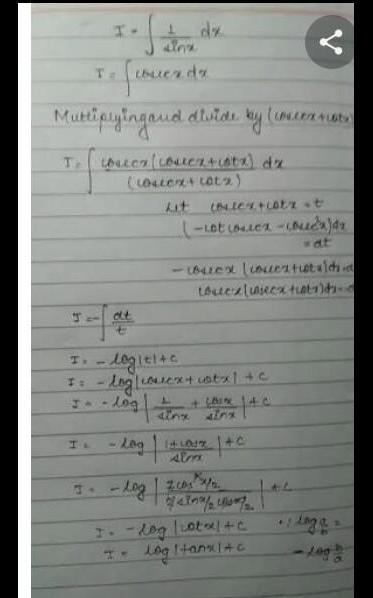 I = ∫ 1/sinx dx
I = ∫ cosecx dx
Multiplying and divide by (cosecx+cotx)
I = ∫ cosecx(cosecx+cotx) dx
(cosecx+cotx)
let cosecx+cotx = t
(-cot cosecx - cosec²x)dx
= dt
-cosecx (cosecx+cotx)dx = d
cosecx(cosecx+cotx)dx = -d
I = -∫ dt/t
I = -log|t|+c
I = -log|cosecx+cotx|+c
I = -log| 1/sinx + cosx/sinx |+c
I = -log| 1+cosx/sinx |+c
I = -log| 2cos²x/2 / 2sinx/2 cosx/2 |+c
I = -log|cotx|+c ∵ log a/b =
I = log|tanx|+c -log b/a